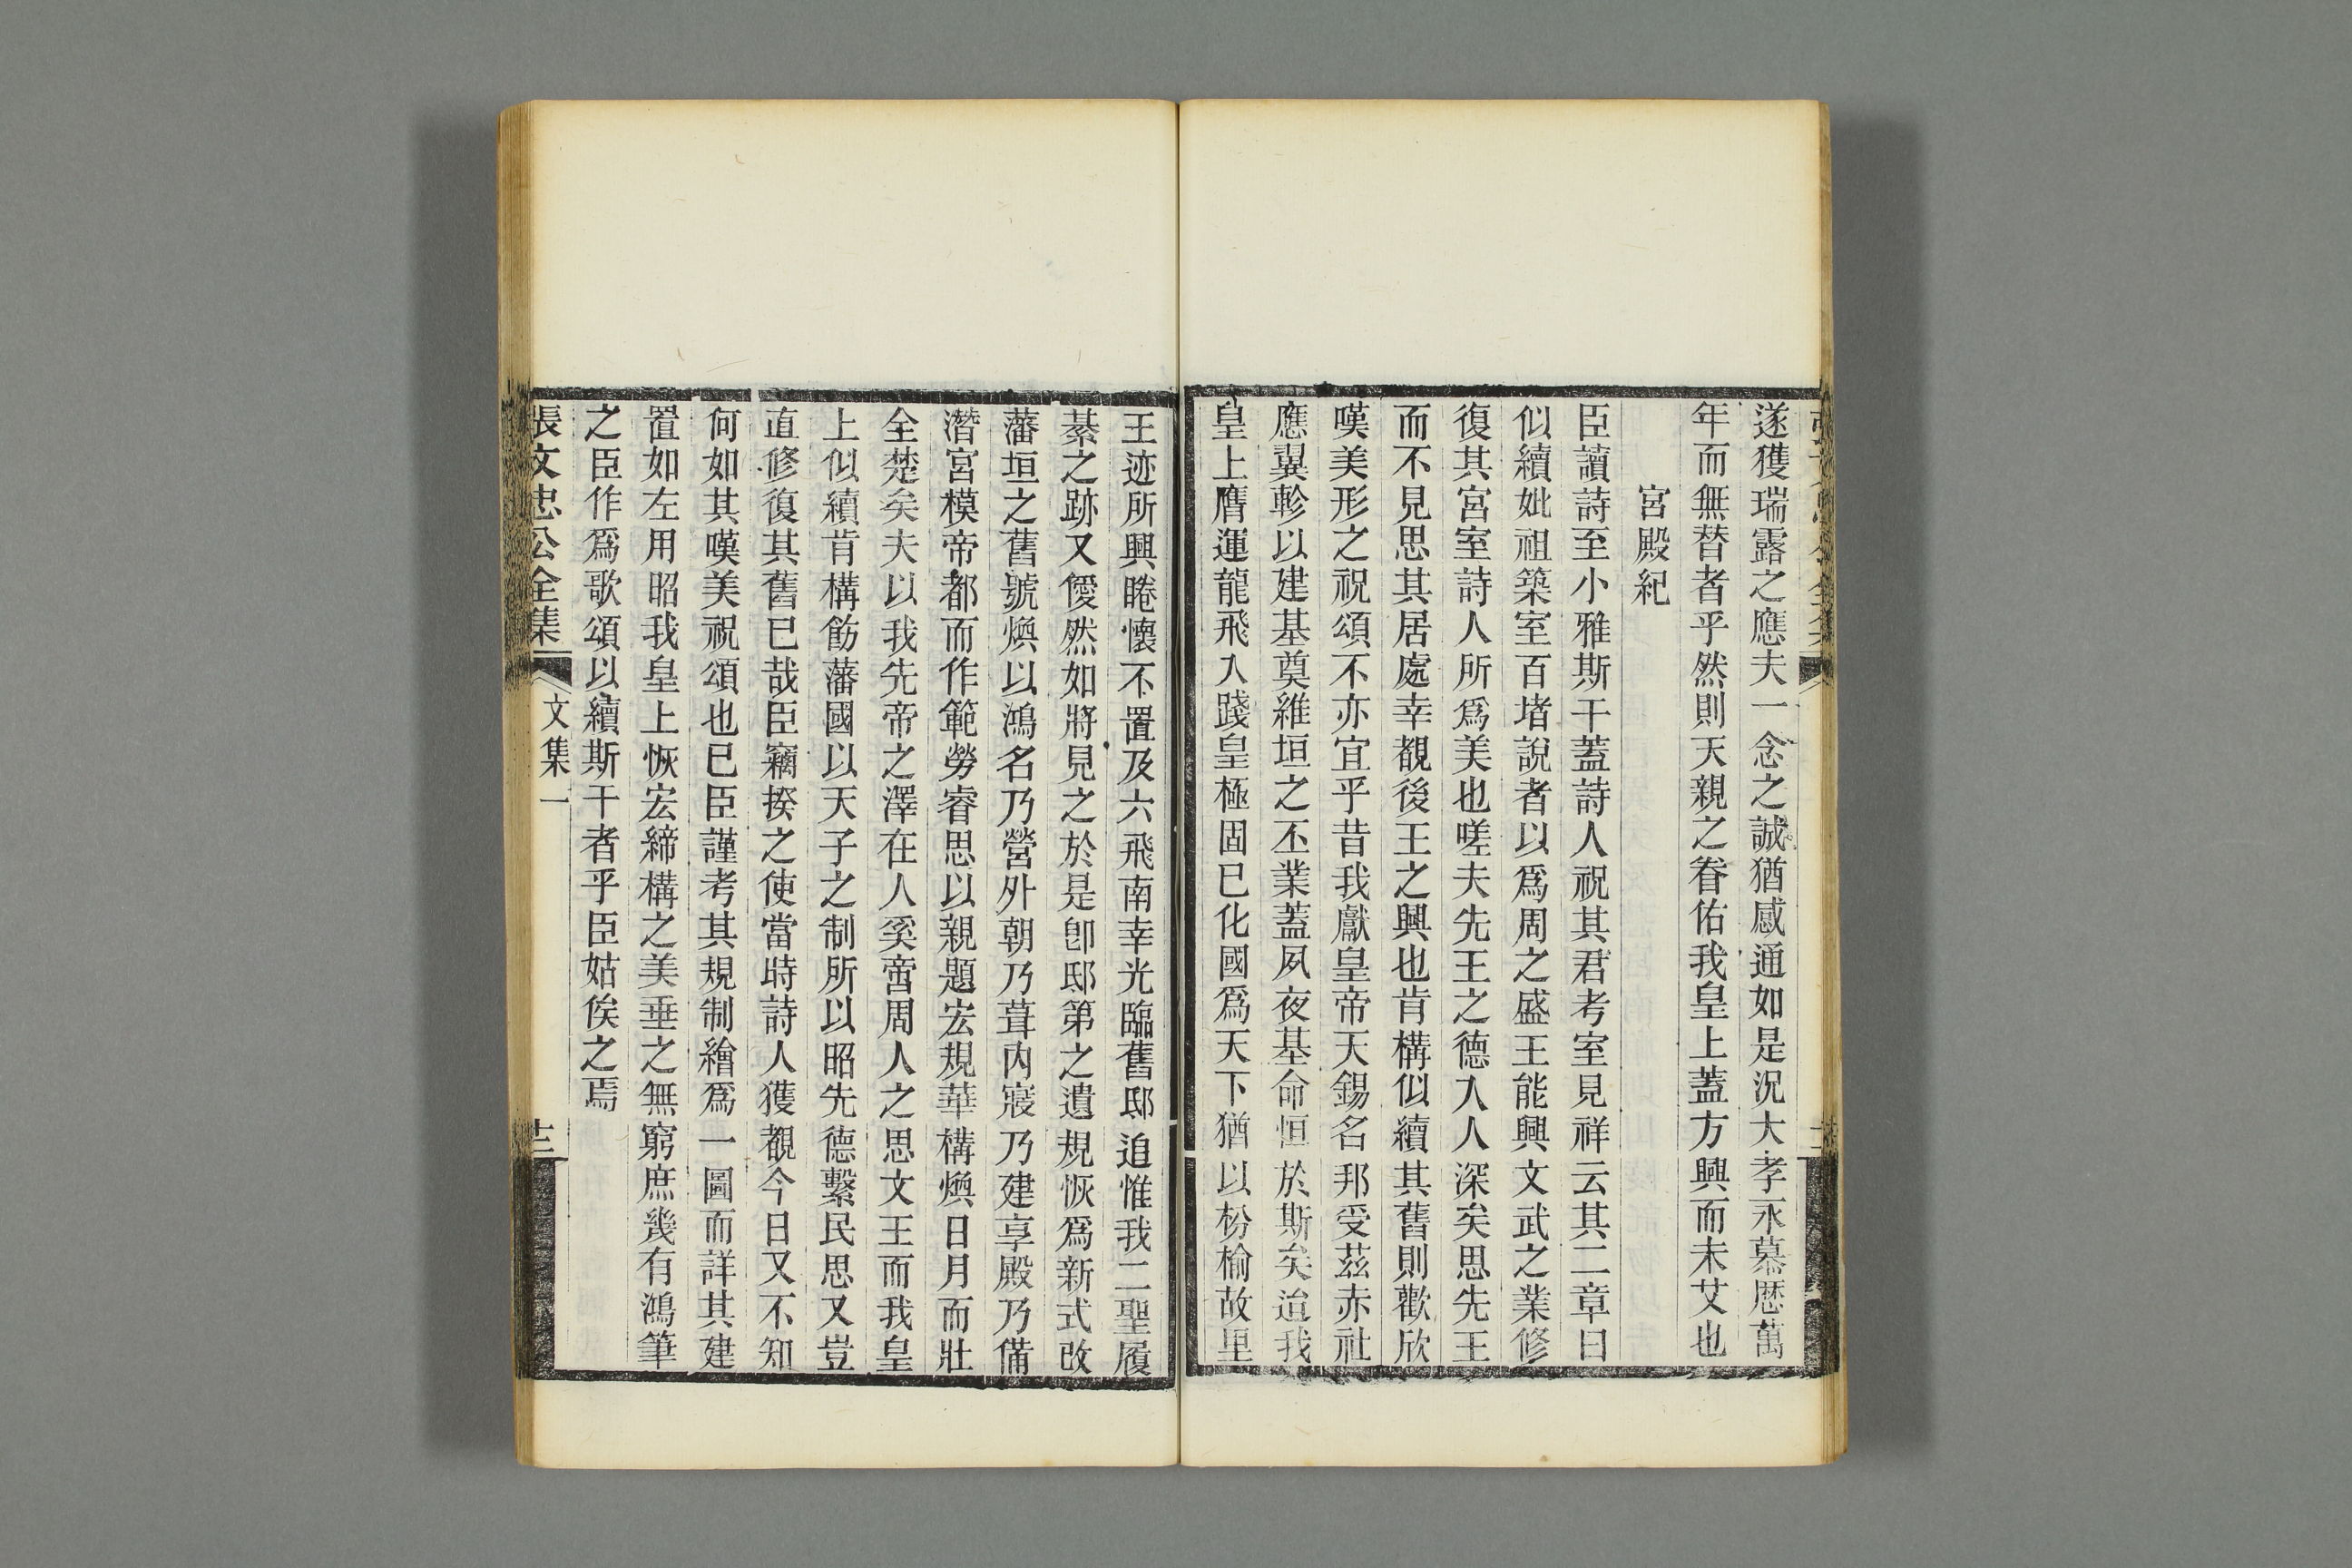 遂獲瑞露之應夫一念之誠猶感通如是況大孝永慕歷萬
年而無替者乎然則天親之眷佑我皇上蓋方興而未艾也
宮殿紀
臣讀詩至小雅斯干蓋詩人祝其君考室見祥云其二章曰
似續妣祖築室百堵說者以爲周之盛王能興文武之業修
復其宮室詩人所爲美也嗟夫先王之德入人深矣思先王
而不見思其居處幸覩後王之興也肯構似續其舊則歡欣
嘆美形之祝頌不亦宜乎昔我獻皇帝天錫名邦受茲赤社
應翼軫以建基奠維垣之丕業蓋夙夜基命恒於斯矣迨我
皇上膺運龍飛入踐皇極固已化國爲天下猶以枌榆故里
王迹所興睠懷不置及六飛南幸光臨舊邸追惟我二聖履
綦之跡又僾然如將見之於是卽邸第之遺規恢爲新式改
藩垣之舊號煥以鴻名乃營外朝乃葺內寢乃建享殿乃備
潛宮模帝都而作範勞睿思以親題宏規華構煥日月而壯
全楚矣夫以我先帝之澤在人奚啻周人之思文王而我皇
上似續肯構飭藩國以天子之制所以昭先德繫民思又豈
直修復其舊已哉臣竊揆之使當時詩人獲覩今日又不知
何如其嘆美祝頌也已臣謹考其規制繪爲一圖而詳其建
置如左用昭我皇上恢宏締構之美垂之無窮庶幾有鴻筆
之臣作爲歌頌以續斯干者乎臣姑俟之焉
張文忠公全集
文集一